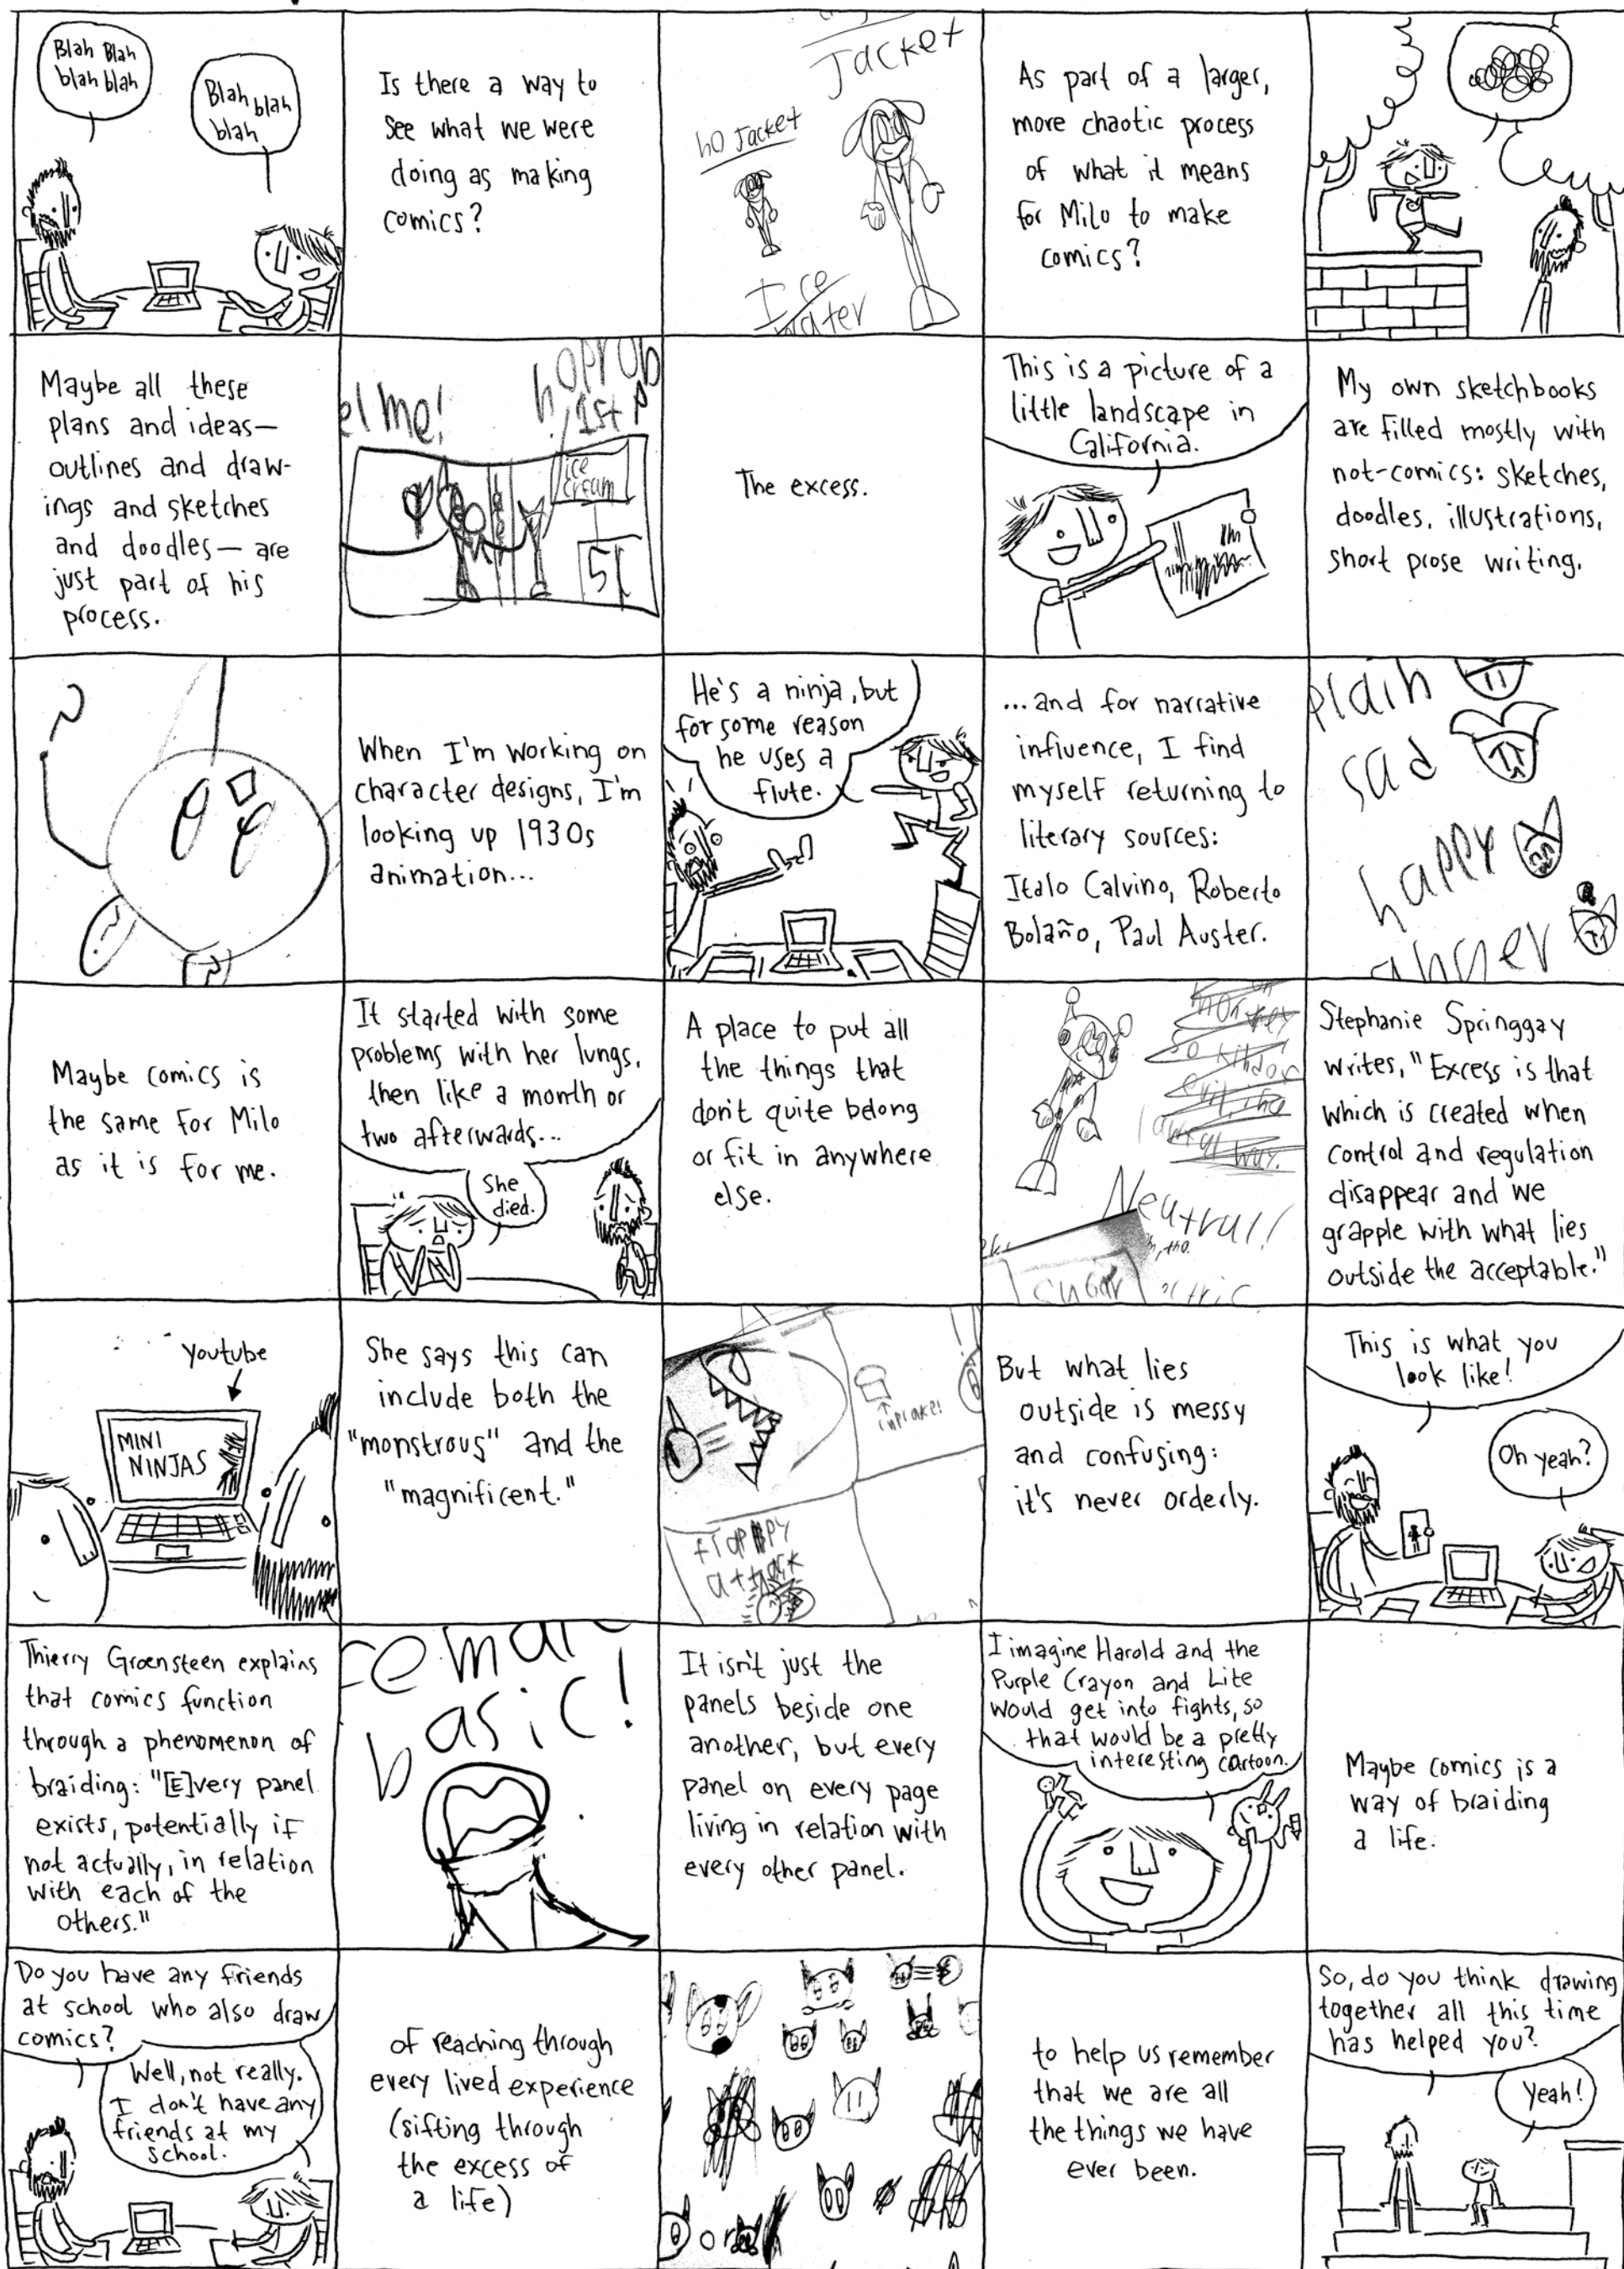 Blah Blah
blah blah
Blah blah
blah
Is there a way to
see what we were
doing as making
comics?
Jacket
no Jacket
Ice
water
As part of a larger,
more chaotic process
of what it means
for Milo to make
comics?
Maybe all these
plans and ideas—
outlines and draw-
ings and sketches
and doodles— are
just part of his
process.
el me!
1st
ice
cream
The excess.
This is a picture of a
little landscape in
California.
My own sketchbooks
are filled mostly with
not-comics: sketches,
doodles, illustrations,
short prose writing.
When I'm working on
character designs, I'm
looking up 1930s
animation...
He's a ninja, but
for some reason
he uses a
flute.
...and for narrative
influence, I find
myself returning to
literary sources:
Italo Calvino, Roberto
Bolaño, Paul Auster.
plain
sad
happy
Maybe comics is
the same for Milo
as it is for me.
It started with some
problems with her lungs,
then like a month or
two afterwards...
She
died.
A place to put all
the things that
don't quite belong
or fit in anywhere
else.
Neutral!
sugar
Stephanie Springgay
writes, "Excess is that
which is created when
control and regulation
disappear and we
grapple with what lies
outside the acceptable."
Youtube
MINI
NINJAS
She says this can
include both the
"monstrous" and the
"magnificent."
cupcake!
attack
But what lies
outside is messy
and confusing:
it's never orderly.
This is what you
look like!
Oh yeah?
Thierry Groensteen explains
that comics function
through a phenomenon of
braiding: "[E]very panel
exists, potentially if
not actually, in relation
with each of the
others."
basic!
It isn't just the
panels beside one
another, but every
panel on every page
living in relation with
every other panel.
I imagine Harold and the
Purple Crayon and Lite
would get into fights, so
that would be a pretty
interesting cartoon.
Maybe comics is a
way of braiding
a life.
Do you have any friends
at school who also draw
comics?
Well, not really.
I don't have any
friends at my
school.
of reaching through
every lived experience
(sifting through
the excess of
a life)
to help us remember
that we are all
the things we have
ever been.
So, do you think drawing
together all this time
has helped you?
Yeah!